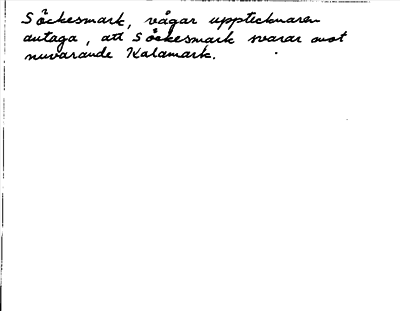 Söckesmark, vågar upptecknaren
antaga, att Söckesmark svarar mot
nuvarande Kalamark.